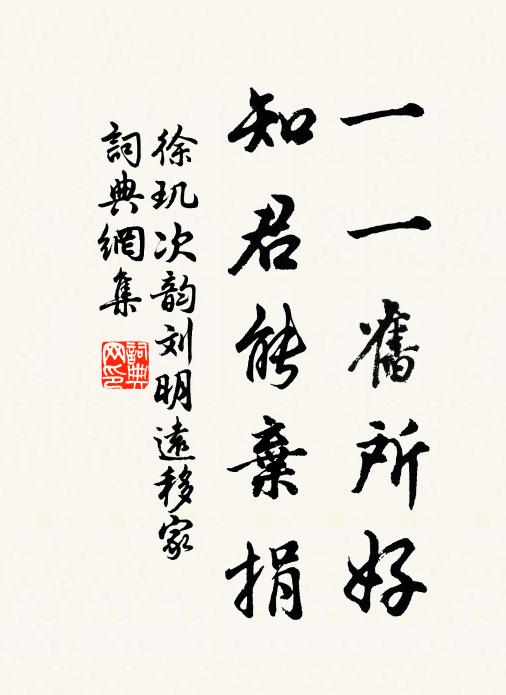 一一舊所好
知君能棄捐
徐玑次韵刘明遠移家
詞典網集
詞典网印